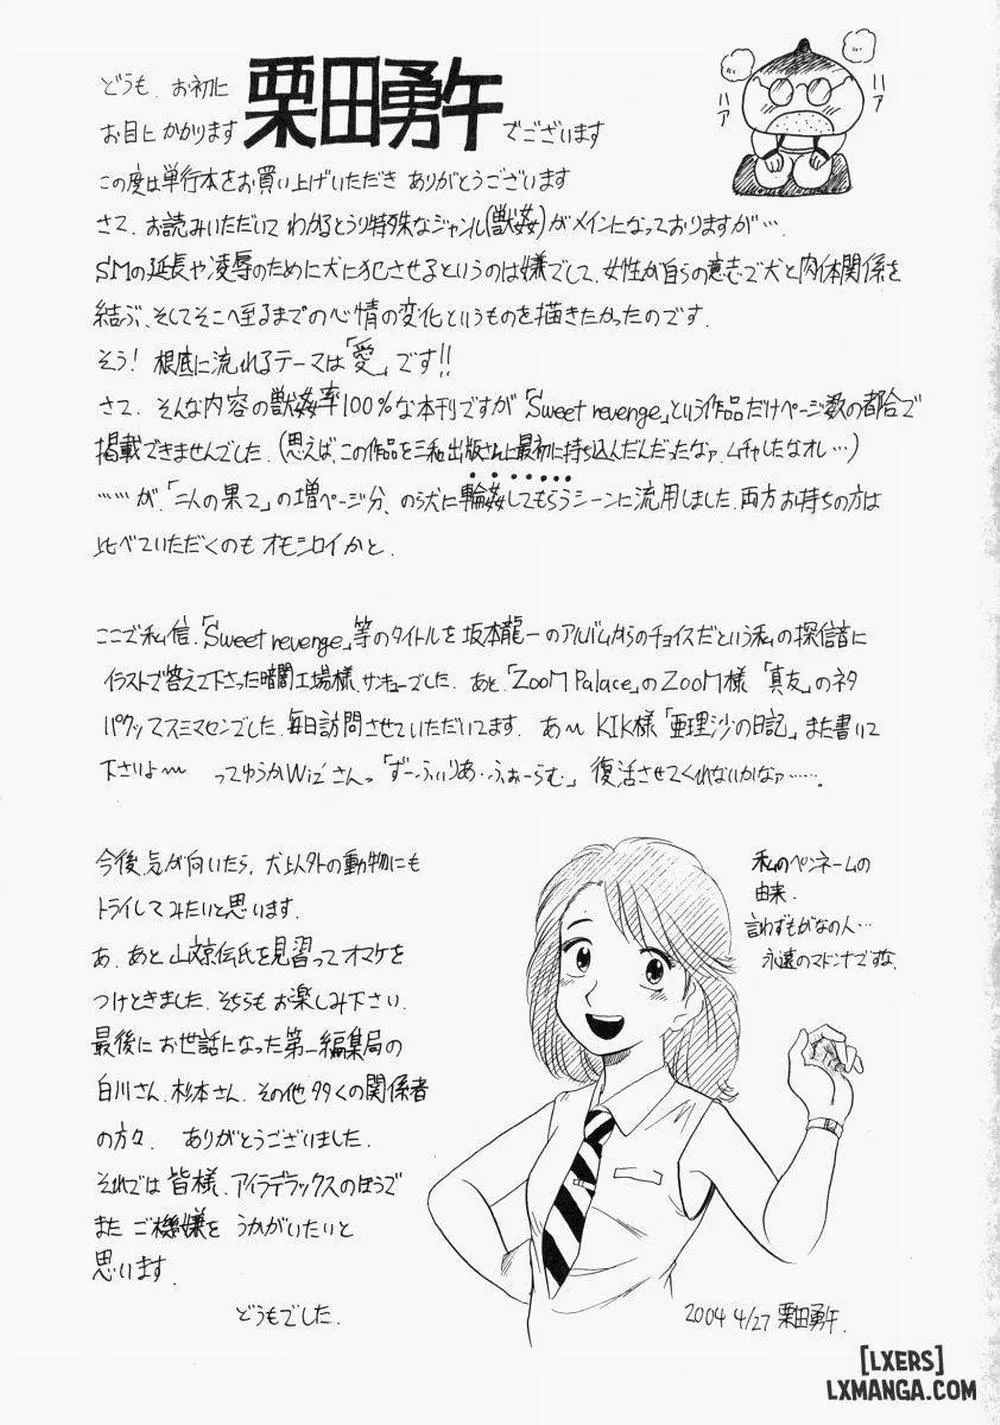 どうも、お初に
お目にかかります 栗田勇午 でございます
この度は単行本をお買い上げいただき ありがとうございます
さて、お読みいただいて わかるとうり特殊なジャンル(獣姦)がメインになっておりますが…、
SMの延長や凌辱のために犬に犯させるというのは嫌でして、女性が自らの意志で犬と肉体関係を
結ぶ、そしてそこへ至るまでの心情の変化というものを描きたかったのです。
そう! 根底に流れるテーマは「愛」です!!
さて、そんな内容の獣姦率100%な本刊ですが「Sweet revenge」という作品だけページ数の都合で
掲載できませんでした。(思えば、この作品を三和出版さんに最初に持ち込んだんだったなァ、ムチャしたなオレ…)
……が、「二人の果て」の増ページ分、のら犬に輪姦してもらうシーンに流用しました。両方お持ちの方は
比べていただくのもオモシロイかと、
ここで私信、「Sweet revenge」等のタイトルを坂本龍一のアルバムからのチョイスだという私の探信音に
イラストで答えて下さった暗闇工場様、サンキューでした。あと「ZOOM Palace」のZOOM様 「真友」のネタ
パクッてスミマセンでした、毎日訪問させていただいてます。 あ〜 KIK様「亜理沙の日記」また書いて
下さいよ〜 ってゆうかWiz'さんっ「ずーふぃりあ・ふぉーらむ」 復活させてくれないかなァ……。
今後、気が向いたら、犬以外の動物にも
トライしてみたいと思います。
あ、あと山文京伝氏を見習ってオマケを
つけときました、そちらもお楽しみ下さい。
最後にお世話になった第一編集局の
白川さん、杉本さん、その他多くの関係者
の方々、 ありがとうございました。
それでは皆様、アイラデラックスのほうで
またご機嫌を うかがいたいと
思います。
どうもでした。
ハア
ハア
私のペンネームの
由来、
言わずもがなの人…
永遠のマドンナですな、
2004 4/27 栗田勇午.
[LXERS]
LXMANGA.COM